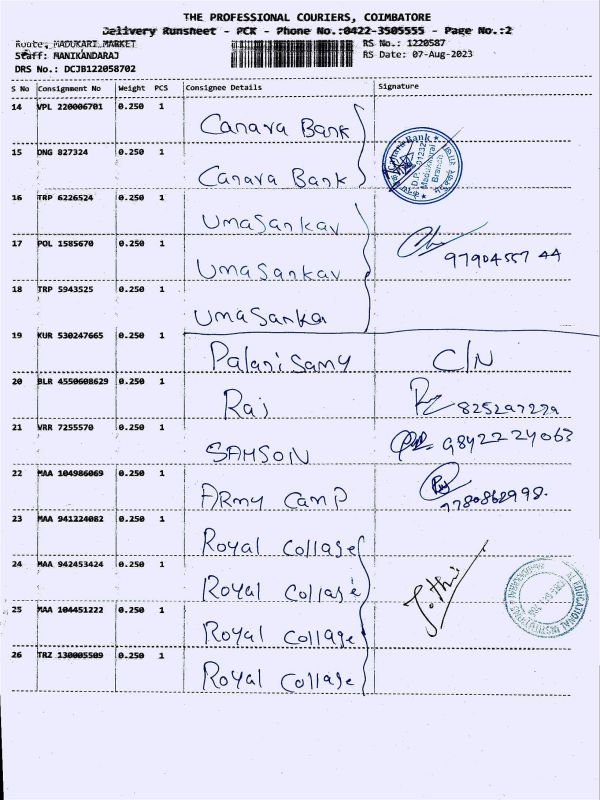 THE PROFESSIONAL COURIERS, COIMBATORE
Delivery Runsheet - PCK - Phone No.:0422-3505555 - Page No.:2
Route: MADUKARI MARKET RS No.: 1220587
Staff: MANIKANDARAJ RS Date: 07-Aug-2023
DRS No.: DCJB122058702
S No Consignment No Weight PCS Consignee Details Signature
14 VPL 220006701 0.250 1 Canara Bank
15 DNG 827324 0.250 1 Canara Bank
Canara Bank
Madukkarai
Branch
16 TRP 6226524 0.250 1 Umasankar
17 POL 1585670 0.250 1 Umasankar 9790455744
18 TRP 5943525 0.250 1 Umasankar
19 KUR 530247665 0.250 1 Palanisamy C/N
20 BLR 4550608629 0.250 1 Raj
21 VRR 7255570 0.250 1 SAMSON 9842224063
22 MAA 104986069 0.250 1 ARMY CAMP 9780862998.
23 MAA 941224082 0.250 1 Royal Collage
24 MAA 942453424 0.250 1 Royal Collage Jothi
25 MAA 104451222 0.250 1 Royal Collage
26 TRZ 130005509 0.250 1 Royal Collage